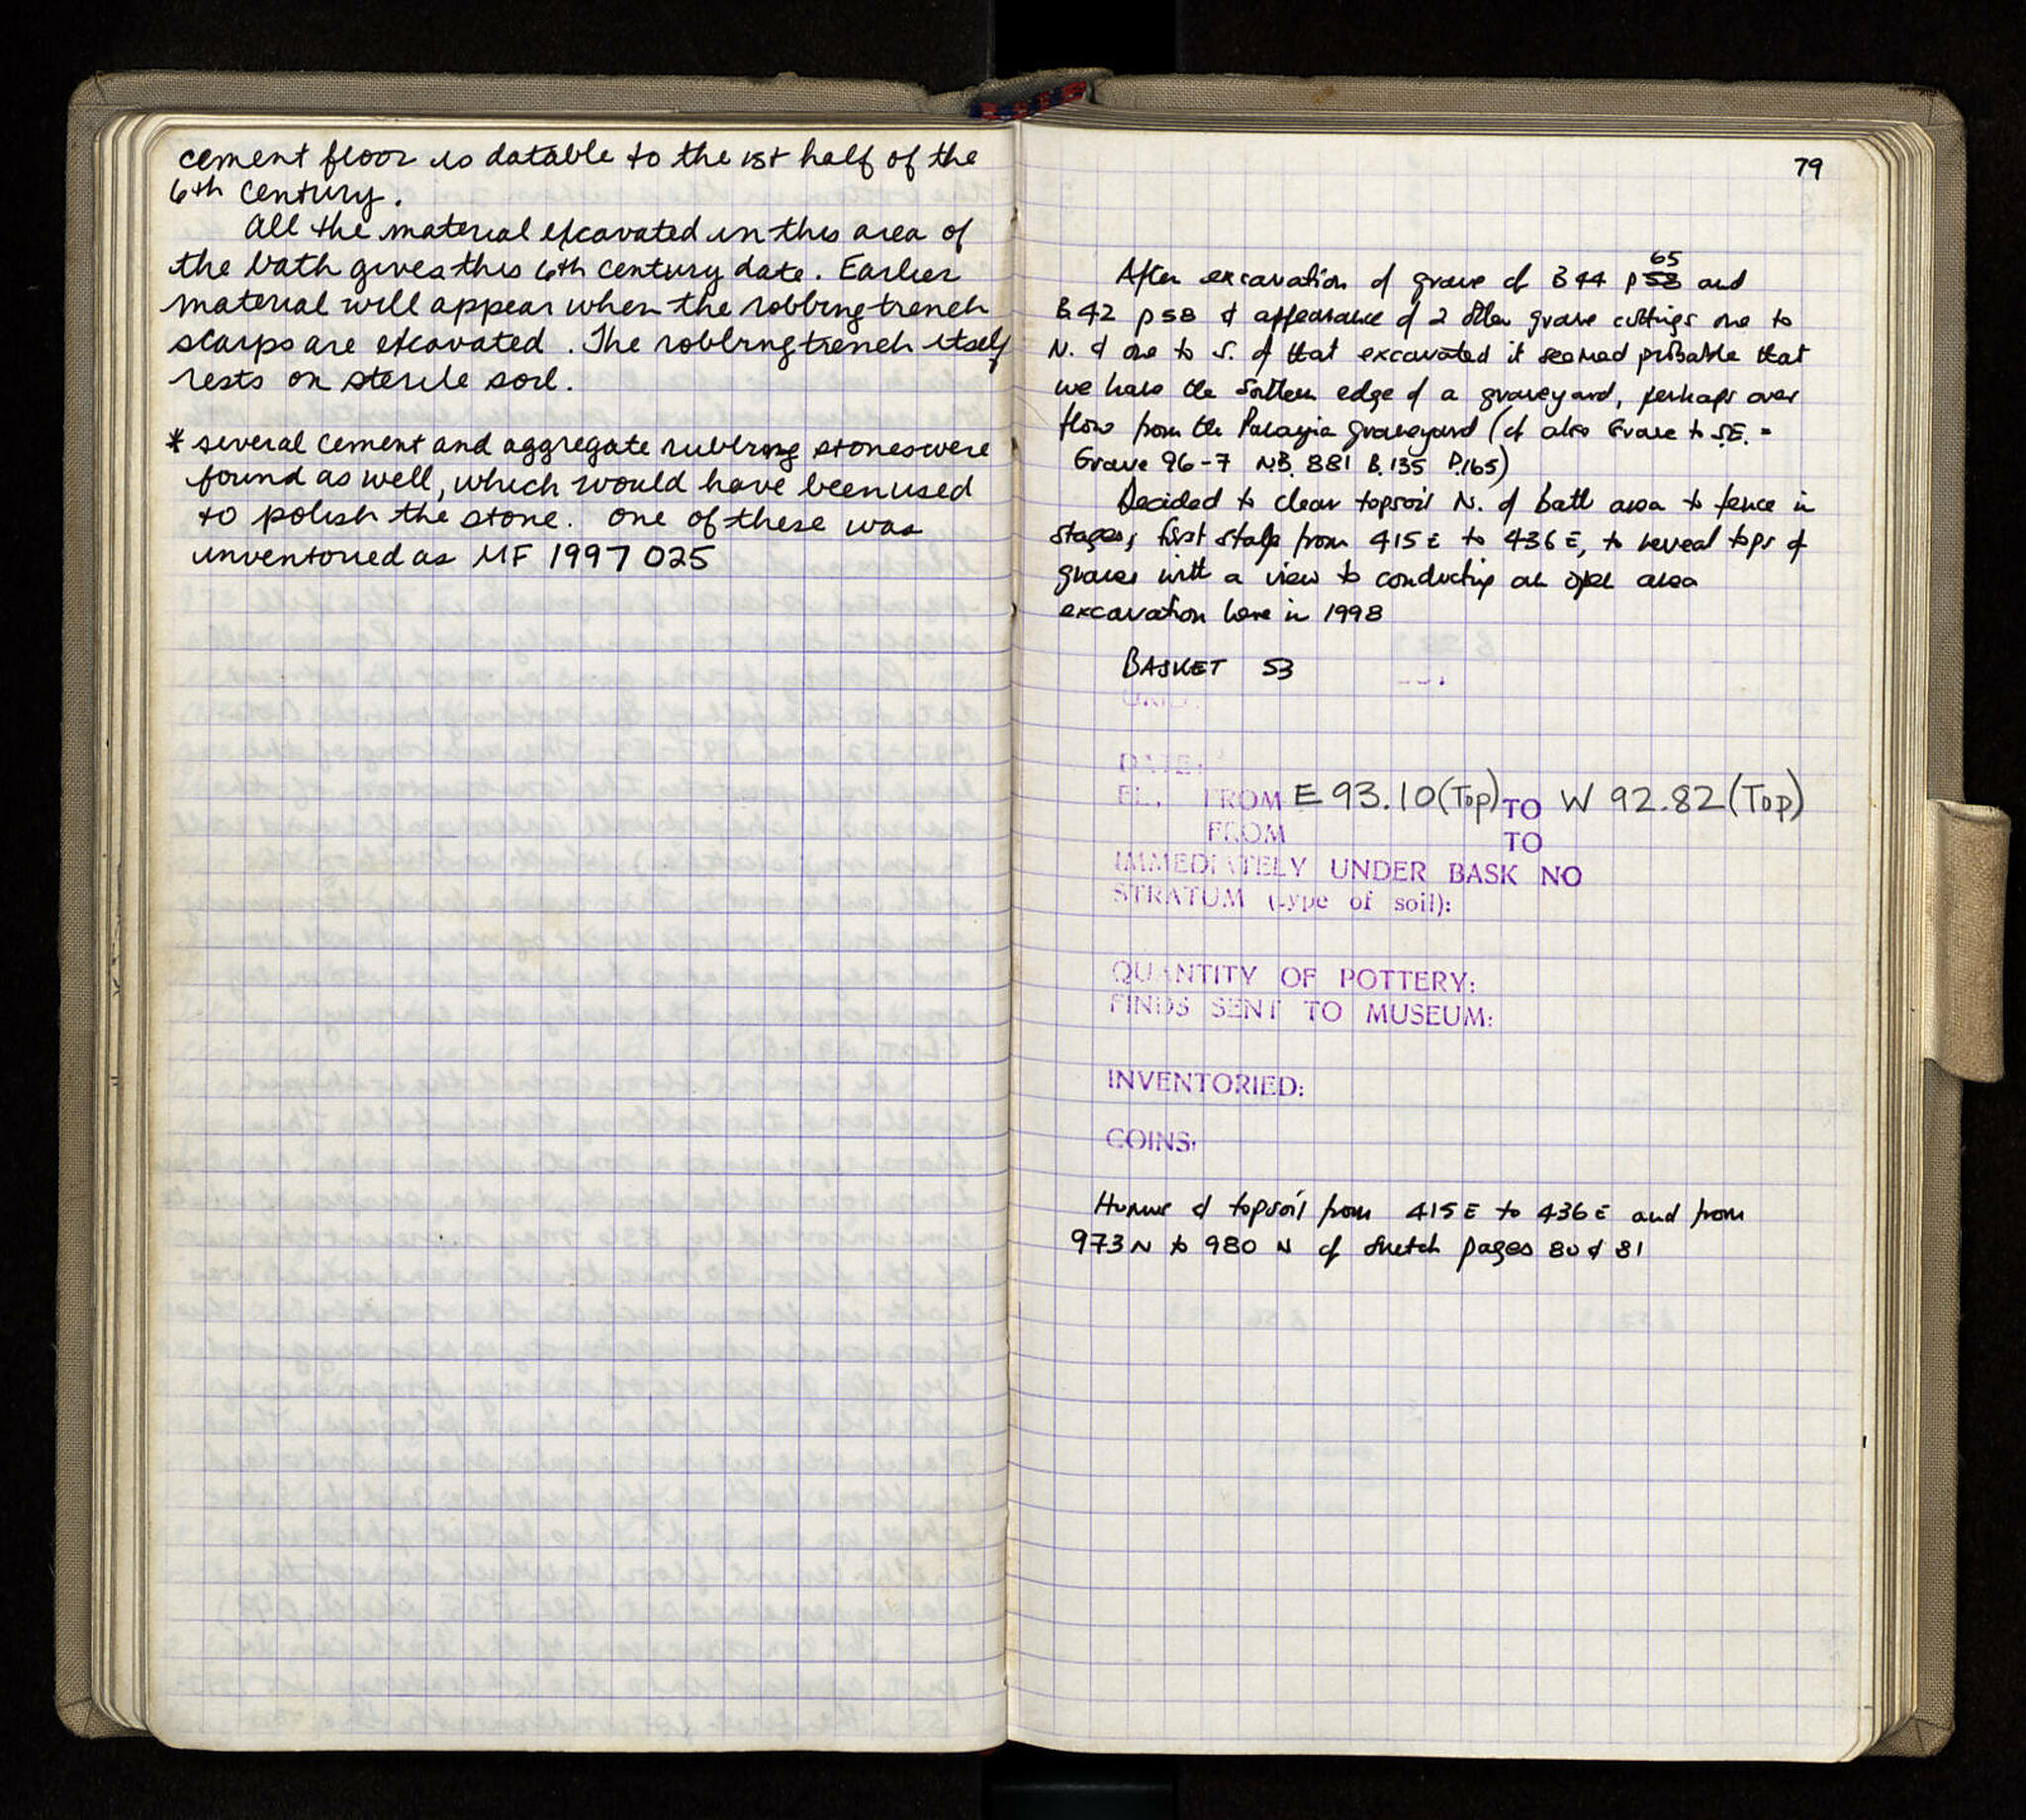 cement floor is datable to the 1st half of the
6th century.
All the material excavated in this area of
the bath gives this 6th century date. Earlier
material will appear when the robbing trench
scarps are excavated. The robbing trench itself
rests on sterile soil.
* several cement and aggregate rubbing stones were
found as well, which would have been used
to polish the stone. One of these was
inventoried as MF 1997 025
79
65
After excavation of grave cf B44 p 58 and
B.42 p 58 & appearance of 2 other grave cuttings one to
N. & one to S. of that excavated it seemed probable that
we have the Southern edge of a graveyard, perhaps over
flow from the Panayia graveyard (cf also Grave to S.E. =
Grave 96-7 NB. 881 B.135 P.165)
Decided to clear topsoil N. of bath area to fence in
stages, first stage from 415 E to 436 E, to reveal tops of
graves with a view to conducting an open area
excavation here in 1998
BASKET 53
GRID:
DATE:
EL. FROM E 93.10 (Top) TO W 92.82 (Top)
FROM TO
IMMEDIATELY UNDER BASK NO
STRATUM (type of soil):
QUANTITY OF POTTERY:
FINDS SENT TO MUSEUM:
INVENTORIED:
COINS:
Humus & topsoil from 415 E to 436 E and from
973 N to 980 N cf sketch pages 80 & 81